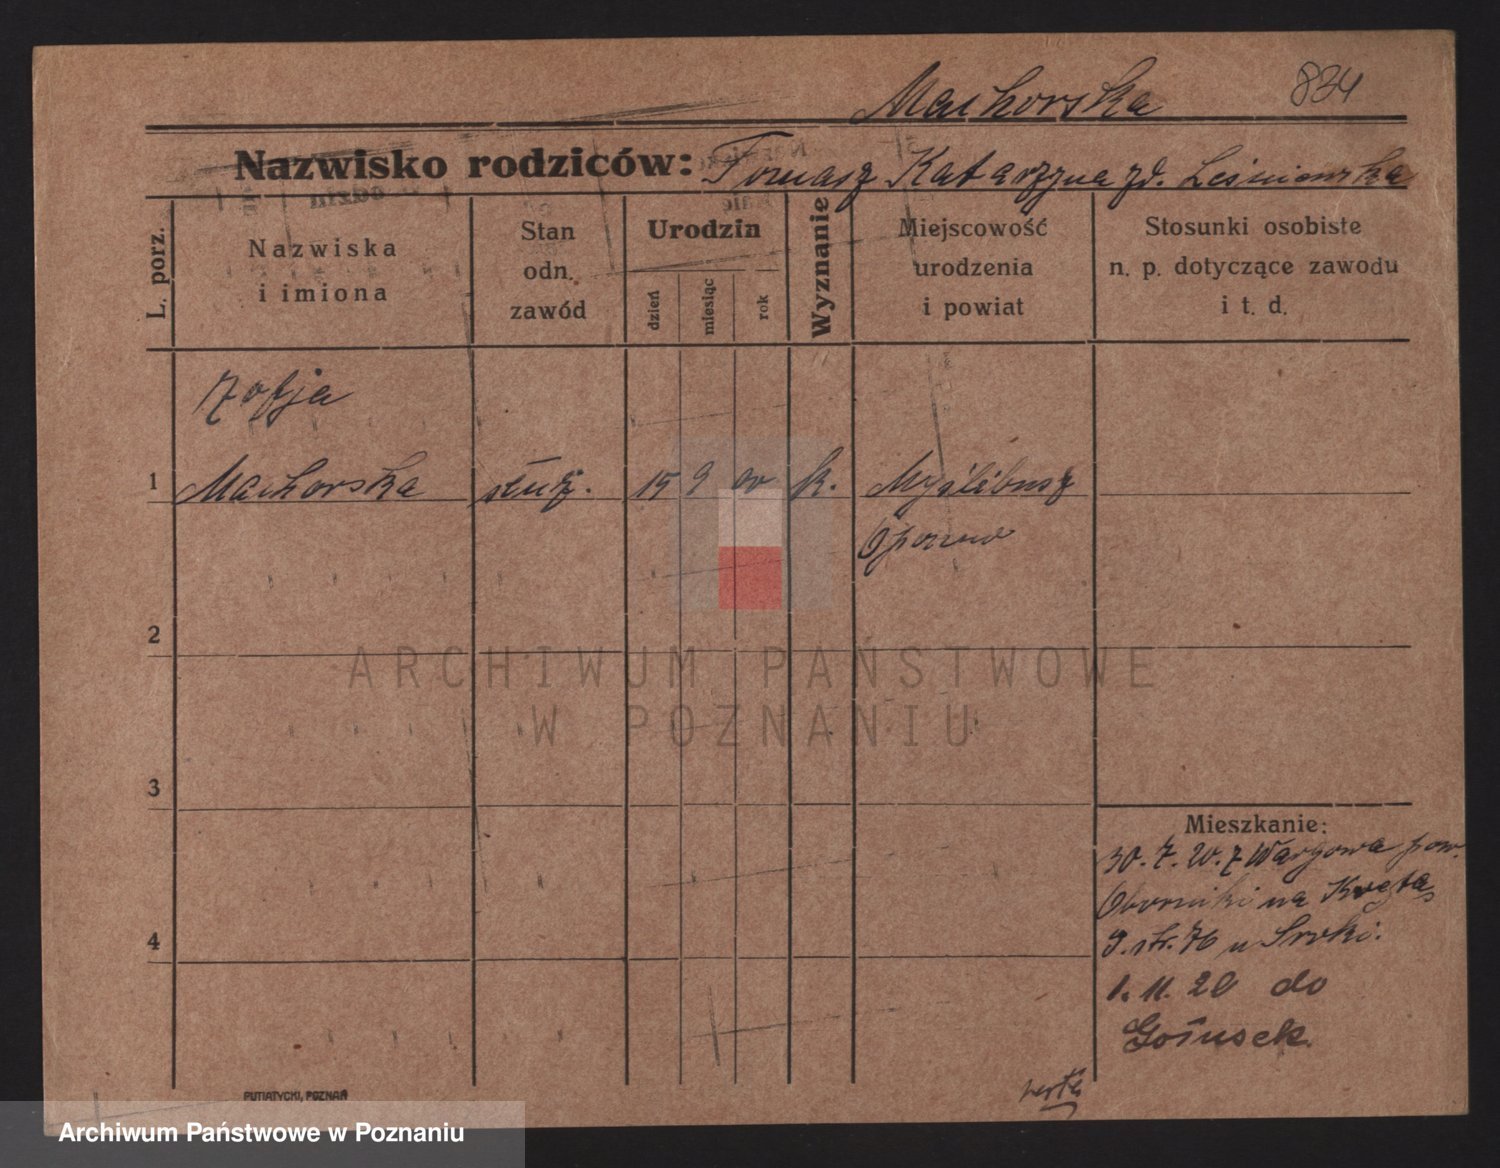 Machorska 834
Nazwisko rodziców: Tomasz Katarzyna zd. Leśniewska
L. porz.
Nazwiska
i imiona
Stan
odn.
zawód
Urodzin
dzień
miesiąc
rok
Wyznanie
Miejscowość
urodzenia
i powiat
Stosunki osobiste
n. p. dotyczące zawodu
i t. d.
Zofja
1 Machorska służ. 15 9 00 k.
Oporowo
2
3
4
Mieszkanie:
30. 7. 20. z Wargowa pow.
Oborniki na
9. str. 76 u Sroki.
1. 11. 20 do
PUTIATYCKI, POZNAŃ
ARCHIWUM PAŃSTWOWE
W POZNANIU
Archiwum Państwowe w Poznaniu